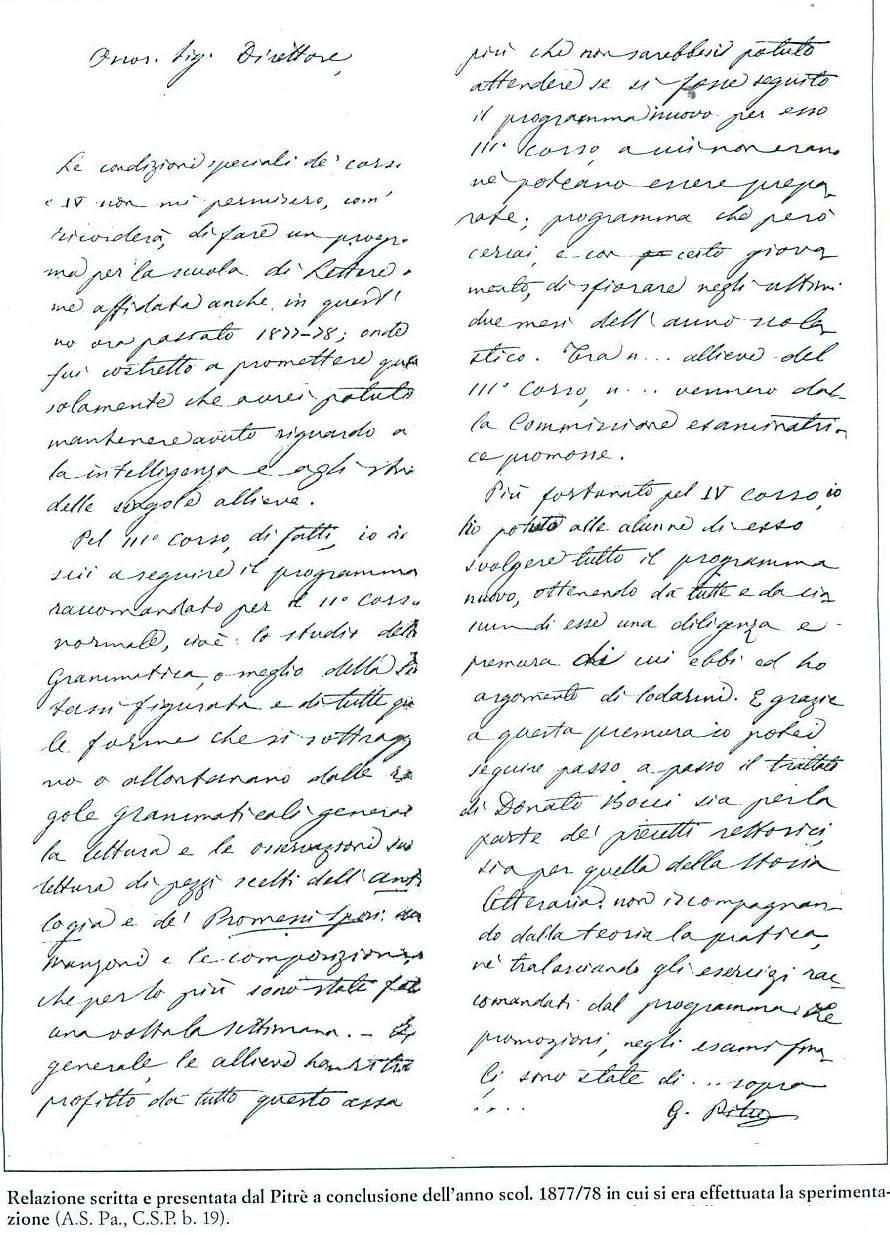 Onor. Sig. Direttore,
Le condizioni speciali de' corsi
e IV non mi permisero, com'
ricorderà, di fare un progr
ma per la scuola di Lettere a
me affidata anche in quest'
no ora passato 1877-78; onde
fui costretto a promettere que
solamente che avrei potuto
mantenere avuto riguardo a
la intelligenza e agli stu
delle singole allieve.
Pel III° corso, di fatti, io
a seguire il programma
raccomandato per il II° corso
normale, cioè: lo studio della
Grammatica, o meglio della Sin
tassi figurata e di tutte que
le forme che si sottrag
no o allontanano dalle re
gole grammaticali generali
la lettura e le osservazioni sul
lettura di pezzi scelti dell'anto
logia e de' Promessi Sposi del
Manzoni e le composizioni
che per lo più sono state fat
una volta la settimana. – In
generale, le allieve han
profitto da tutto questo assa
più che non sarebbesi potuto
attendere se si fosse seguito
il programma nuovo per esso
III° corso, a cui non erano
nè poteano essere prepa
rate; programma che però
cercai, e con certo giova
mento, di sfiorare negli ultimi
due mesi dell'anno scola
stico. Tra n... allieve del
III° corso, n... vennero dal-
la Commissione esaminatri-
ce promosse.
Più fortunato pel IV corso, io
ho potuto alle alunne di esso
svolgere tutto il programma
nuovo, ottenendo da tutte e da cia
scuna di esse una diligenza e
premura di cui ebbi ed ho
argomento di lodarmi. E grazie
a questa premura io potei
seguire passo a passo il trattato
di Donato Bocci sia per la
parte de' precetti rettorici,
sia per quella della storia
letteraria: non iscompagnan
do dalla teoria la pratica,
nè tralasciando gli esercizi rac
comandati dal programma. Le
promozioni, negli esami fina
li, sono state di ... sopra
....
G. Pitrè
Relazione scritta e presentata dal Pitrè a conclusione dell'anno scol. 1877/78 in cui si era effettuata la sperimenta-
zione (A.S. Pa., C.S.P. b. 19).